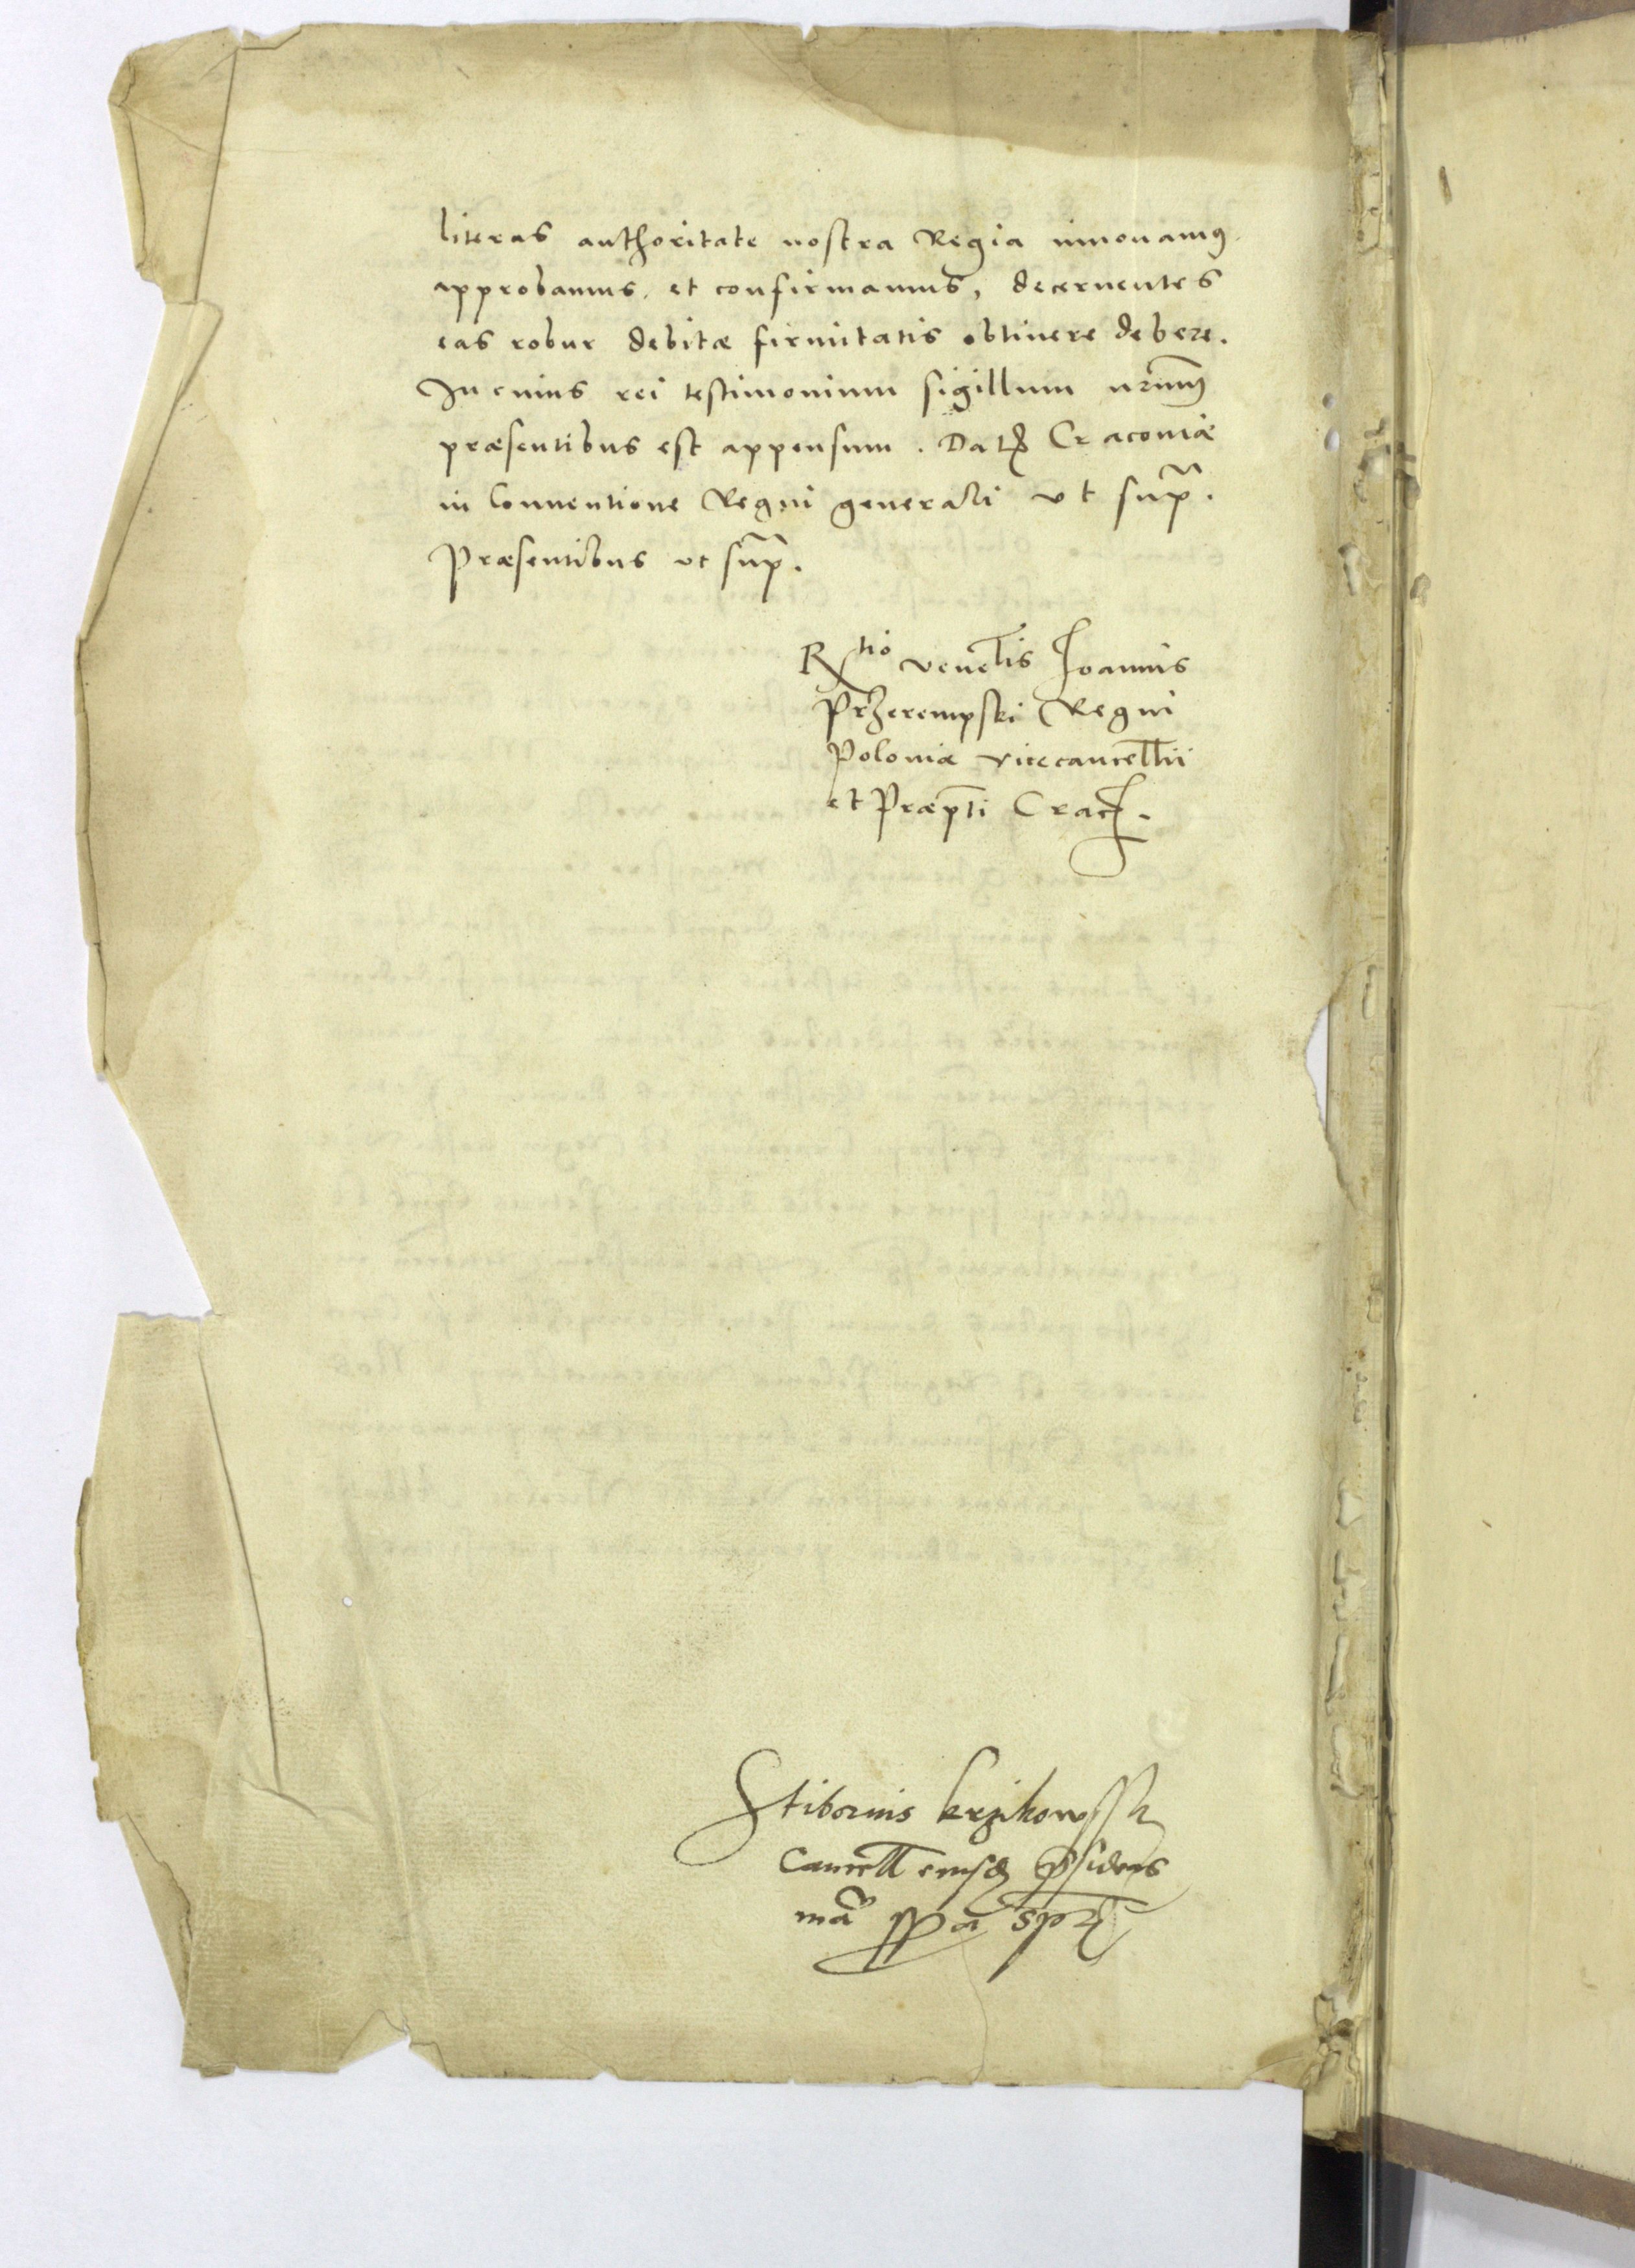 literas authoritate nostra Regia innovamꝰ
approbamus, et confirmamus, decernentes
eas robur debitæ firmitatis obtinere debere.
In cuius rei testimonium sigillum nr̄um
præsentibus est appensum. Datꝭ Cracoviæ
in Conventione Regni generali ut supᷓ.
Præsentibus ut supᷓ.
Rᵗⁱᵒ venel̄is Joannis
Przerempski Regni
Poloniæ vicecancell̄ii
et Præp̄ti Crac̄.
Stibornis krzikowsky
Cancell̄
mā ꝓp̄a